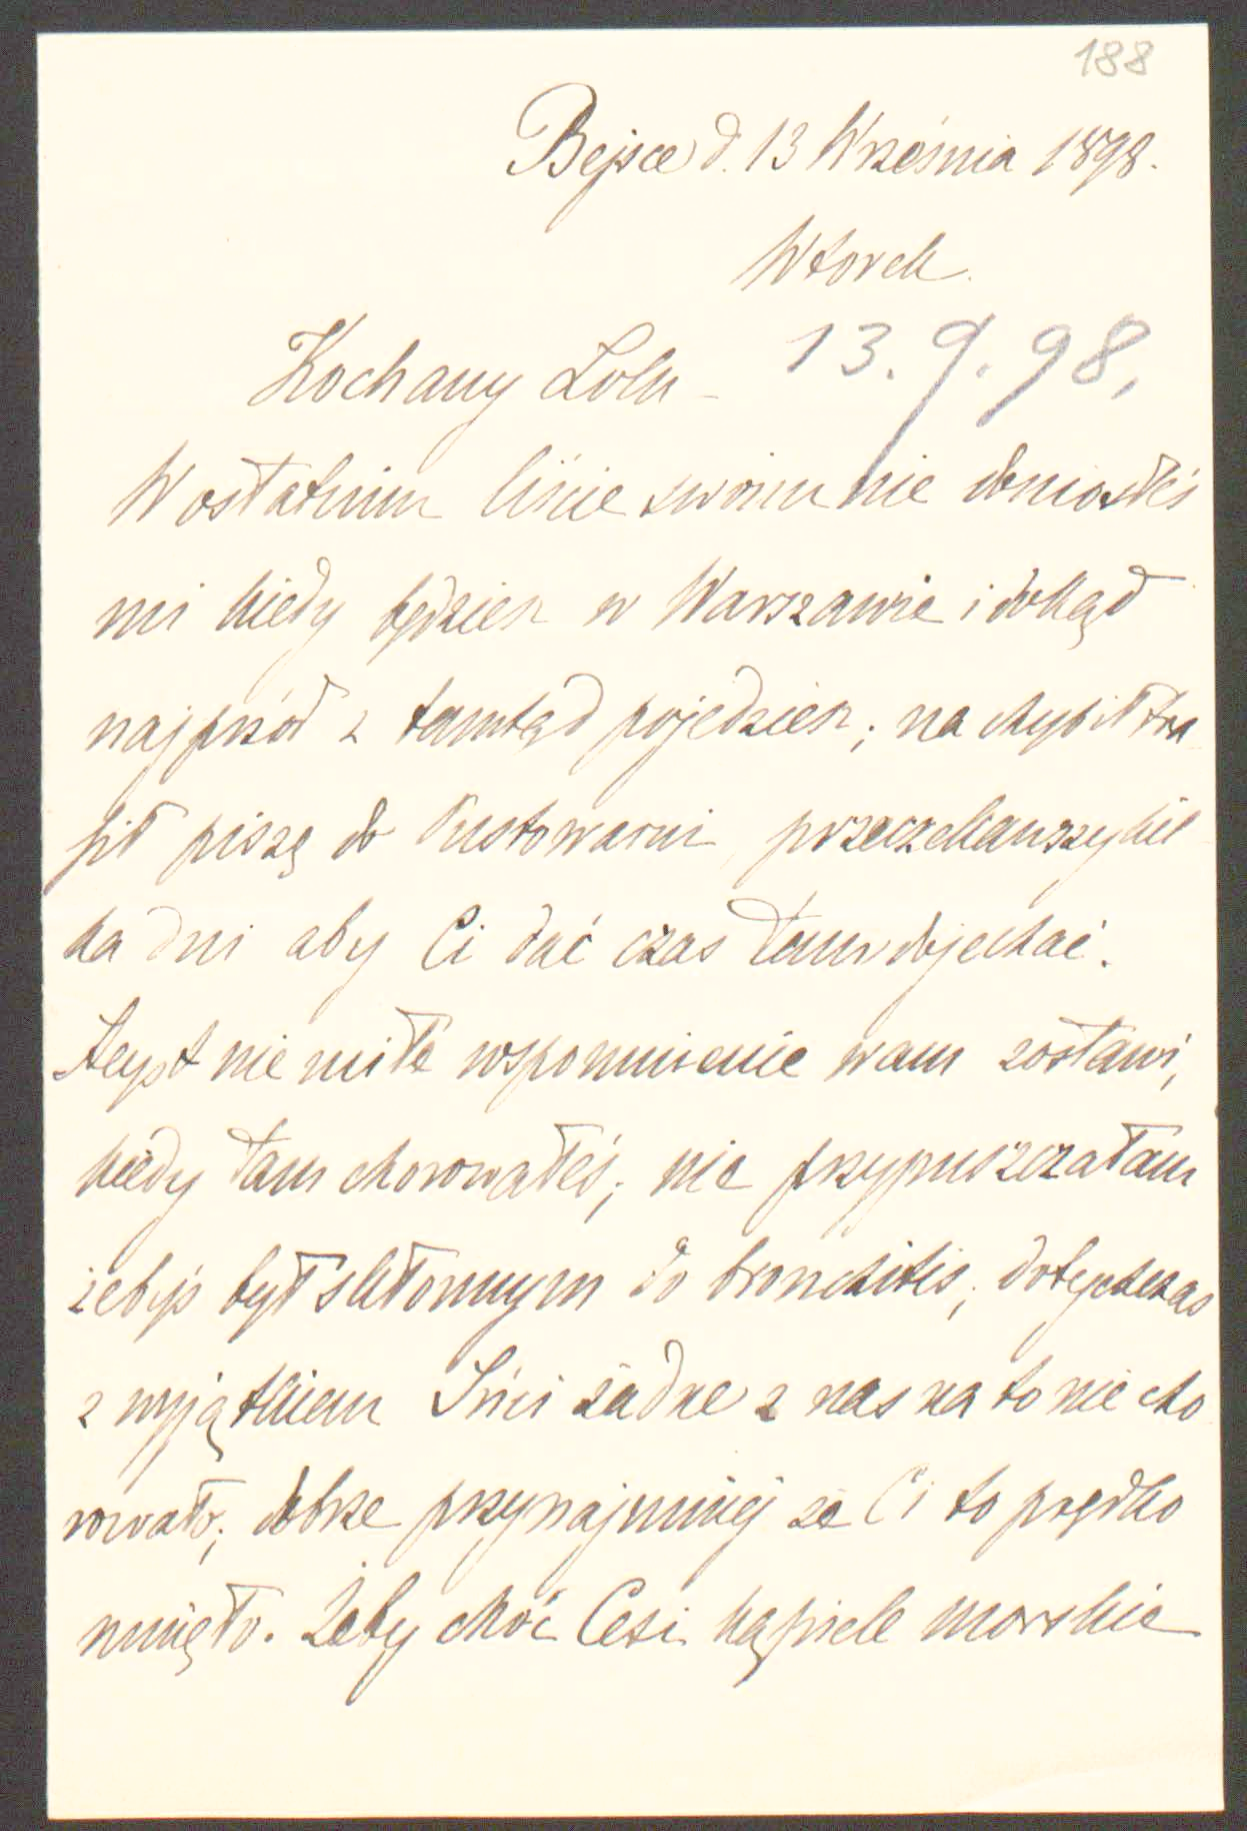 188
Bejsce d. 13 Września 1898.
Wtorek.
13.9.98,
Kochany Lolu -
W ostatnim liście swoim nie doniosłeś
mi kiedy będziesz w Warszawie i dokąd
najprzód z tamtąd pojedziesz; na chybił tra
fił piszę do Pustowarni, przeczekawszy kil
ka dni aby Ci dać czas tam dojechać.
nie miłe wspomnienie wam zostawi,
kiedy tam chorowałeś; nie przypuszczałam
żebyś był skłonnym do bronchitis, dotychczas
z wyjątkiem żadne z nas na to nie cho
rowało; dobrze przynajmniej że Ci to prędko
minęło. Żeby choć Cesi kąpiele morskie